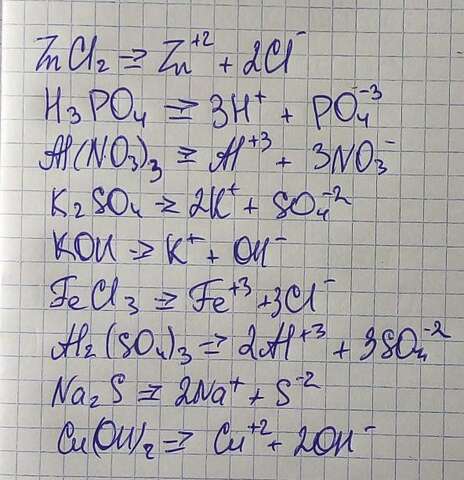 ZnCl₂ ⇌ Zn⁺² + 2Cl⁻
H₃PO₄ ⇌ 3H⁺ + PO₄⁻³
Al(NO₃)₃ ⇌ Al⁺³ + 3NO₃⁻
K₂SO₄ ⇌ 2K⁺ + SO₄⁻²
KOH ⇌ K⁺ + OH⁻
FeCl₃ ⇌ Fe⁺³ + 3Cl⁻
Al₂(SO₄)₃ ⇌ 2Al⁺³ + 3SO₄⁻²
Na₂S ⇌ 2Na⁺ + S⁻²
Cu(OH)₂ ⇌ Cu⁺² + 2OH⁻